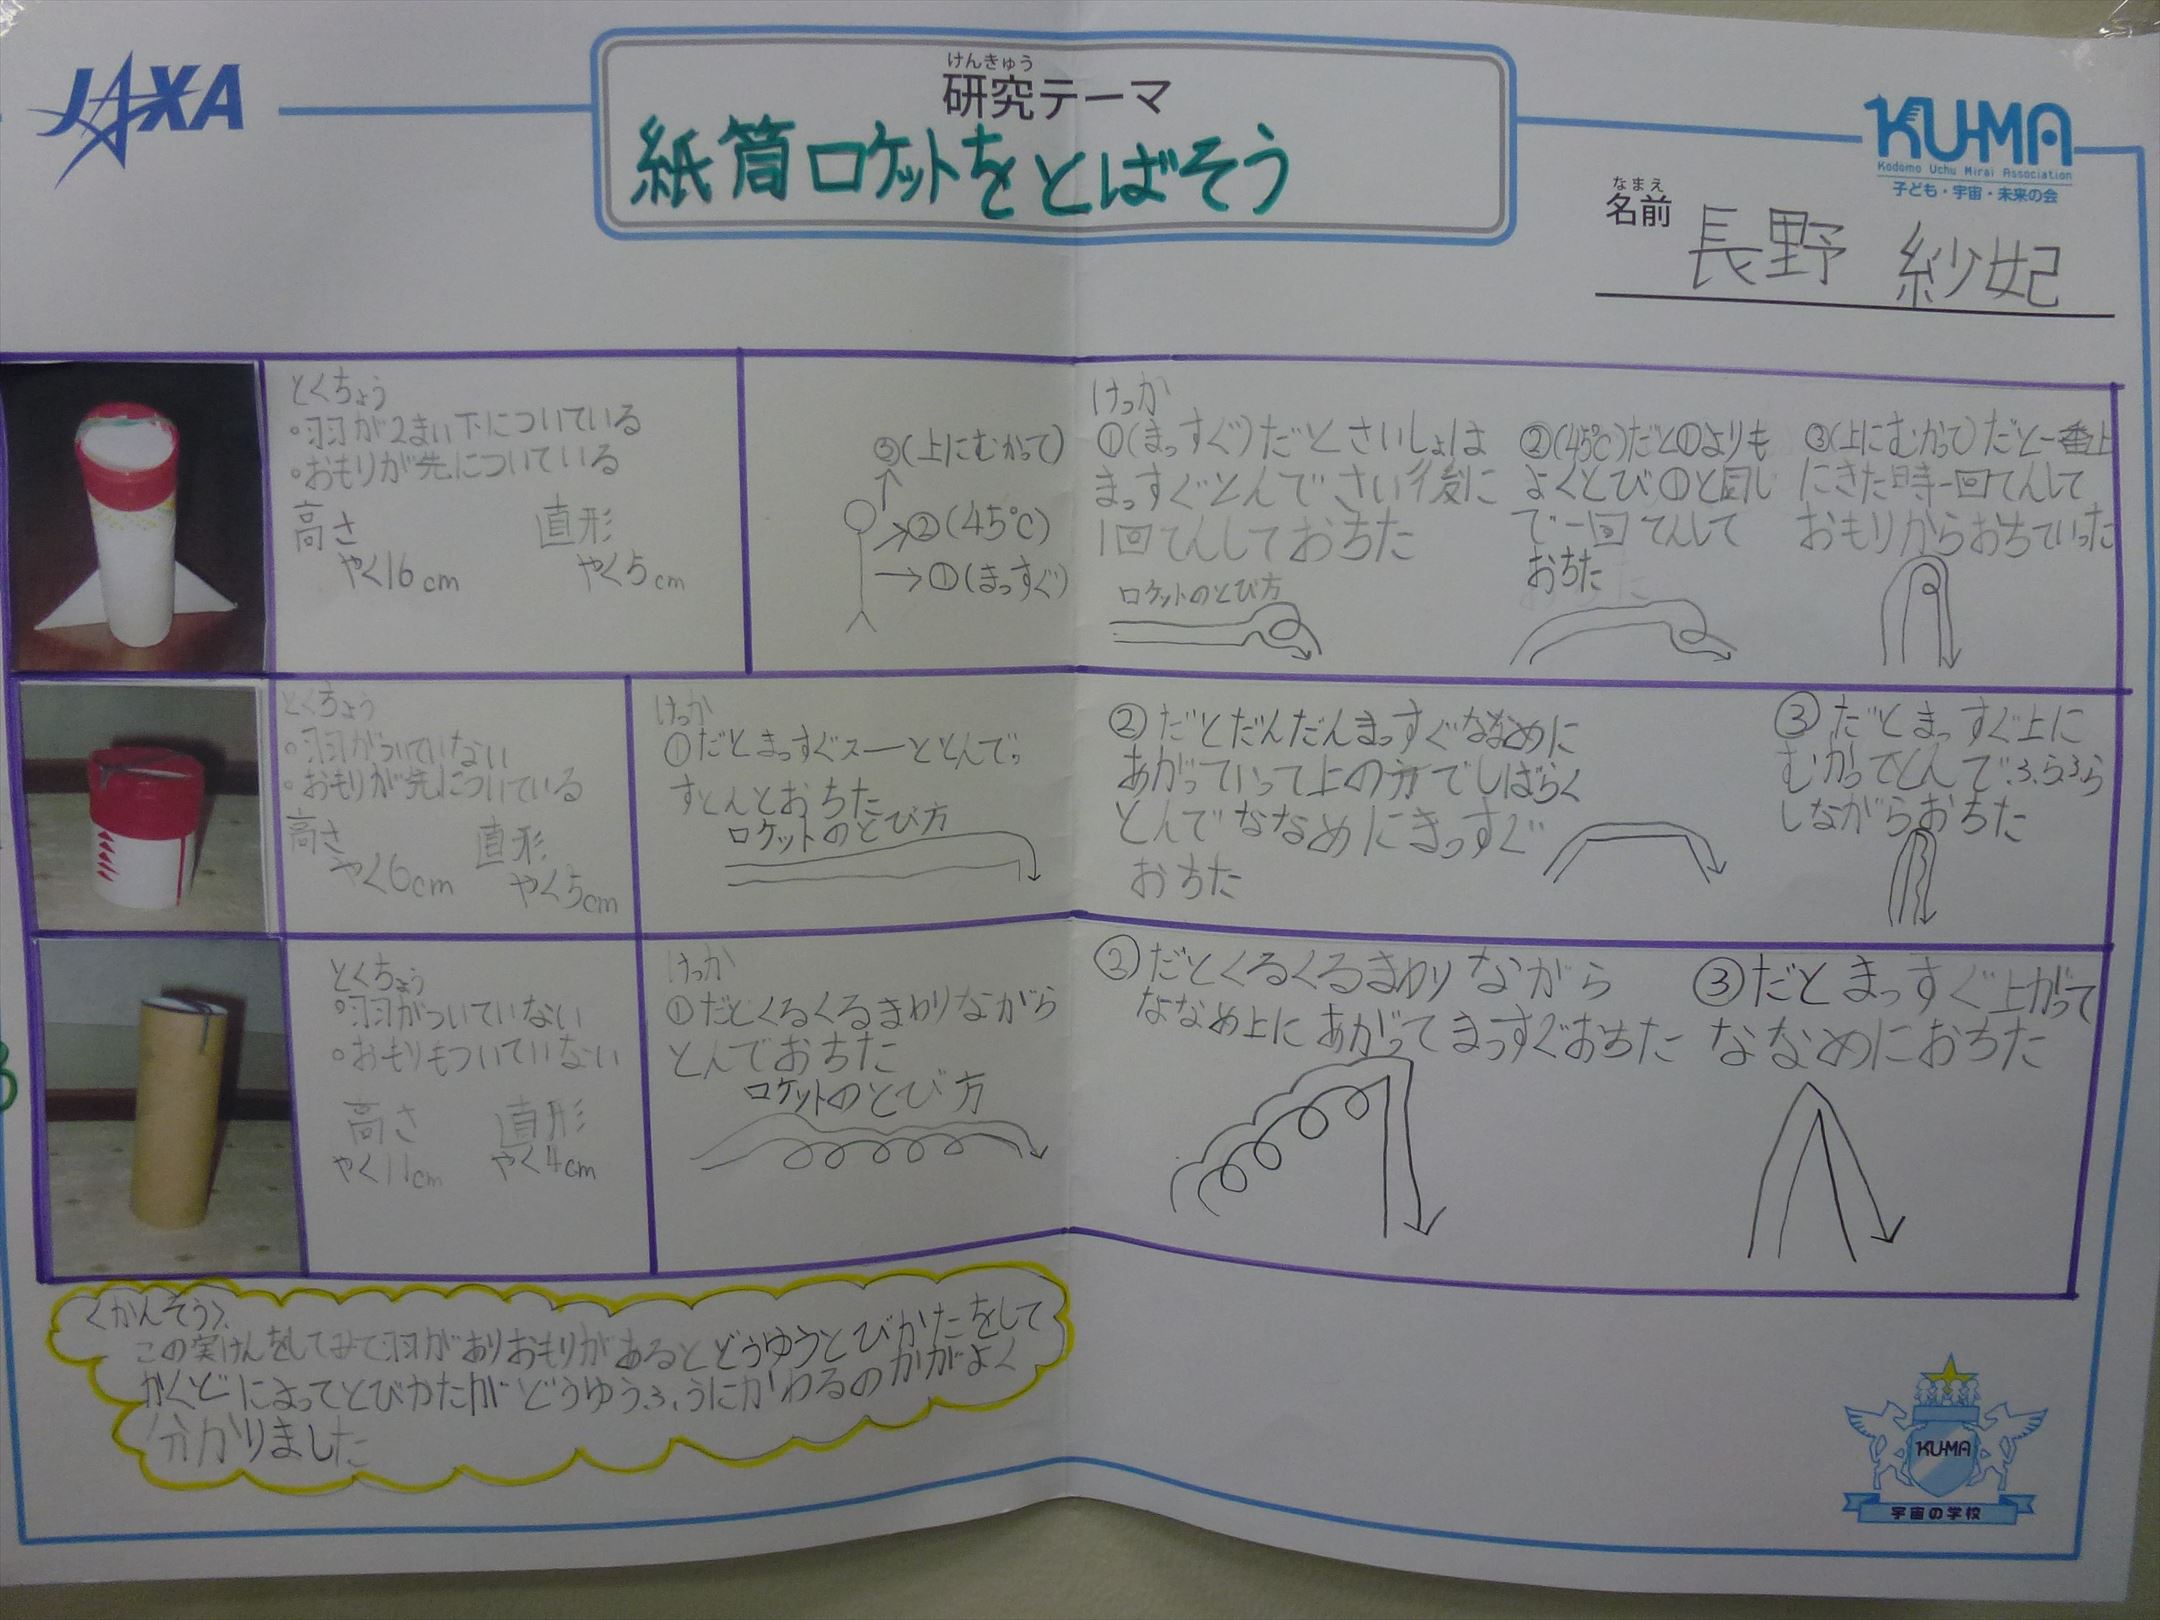 JAXA
けんきゅう
研究テーマ
紙筒ロケットをとばそう
KU-MA
Kodomo Uchu Mirai Association
子ども・宇宙・未来の会
なまえ
名前
長野 紗妃
とくちょう
・羽が2まい下についている
・おもりが先についている
高さ
やく16cm
直形
やく5cm
③(上にむかって)
②(45℃)
①(まっすぐ)
けっか
①(まっすぐ)だとさいしょは
まっすぐとんでさい後に
1回てんしておちた
ロケットのとび方
②(45℃)だと①よりも
よくとび①と同じ
で一回てんして
おちた
③(上にむかって)だと一番上
にきた時一回てんして
おもりからおちていった
とくちょう
・羽がついていない
・おもりが先についている
高さ
やく6cm
直形
やく5cm
けっか
①だとまっすぐスーととんで、
すとんとおちた
ロケットのとび方
②だとだんだんまっすぐななめに
あがっていって上の方でしばらく
とんでななめにまっすぐ
おちた
③だとまっすぐ上に
むかってとんでふらふら
しながらおちた
とくちょう
・羽がついていない
・おもりもついていない
高さ
やく11cm
直形
やく4cm
けっか
①だとくるくるまわりながら
とんでおちた
ロケットのとび方
②だとくるくるまわりながら
ななめ上にあがってまっすぐおちた
③だとまっすぐ上がって
ななめにおちた
<かんそう>
この実けんをしてみて羽がありおもりがあるとどうゆうとびかたをして
かくどによってとびかたがどうゆうふうにかわるのかがよく
分かりました
KU-MA
宇宙の学校